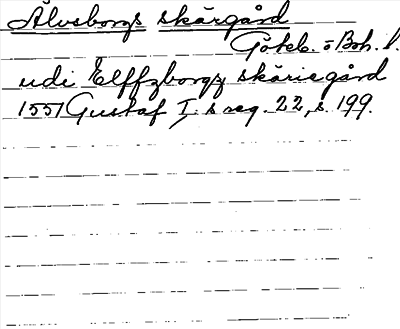 Älvsborgs skärgård
Göteb. o Boh. l.
udi Elffzborgz skäriegård
1551 Gustaf I:s reg. 22, s. 199.